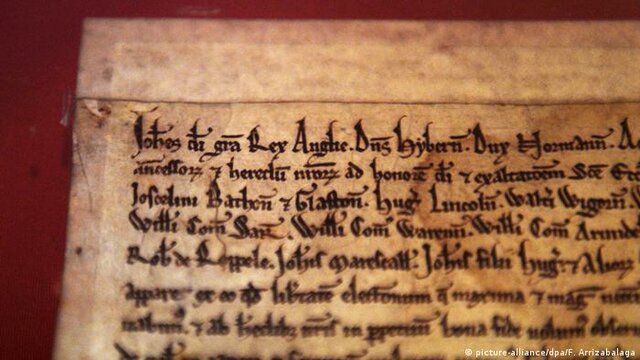 Johes di gra Rex Anglie. Dns Hybern. Dux Normann. A
ancessor & heredum nror ad honore di & exaltatoem Sce Ecc
Joscelini Bathon & Glaston. Hug Lincoln. Walti Wigorn. W
Willi Com Sarr. Willi Com Warenn. Willi Com Arunde
Rob de Roppele. Johis Marescall. Johis filii Hug & Alior
appare ex eo qd libtate electionum q maxima & mag
& ab hedib nris in ppetuum bona fide volum obser
(picture-alliance/dpa/F. Arrizabalaga